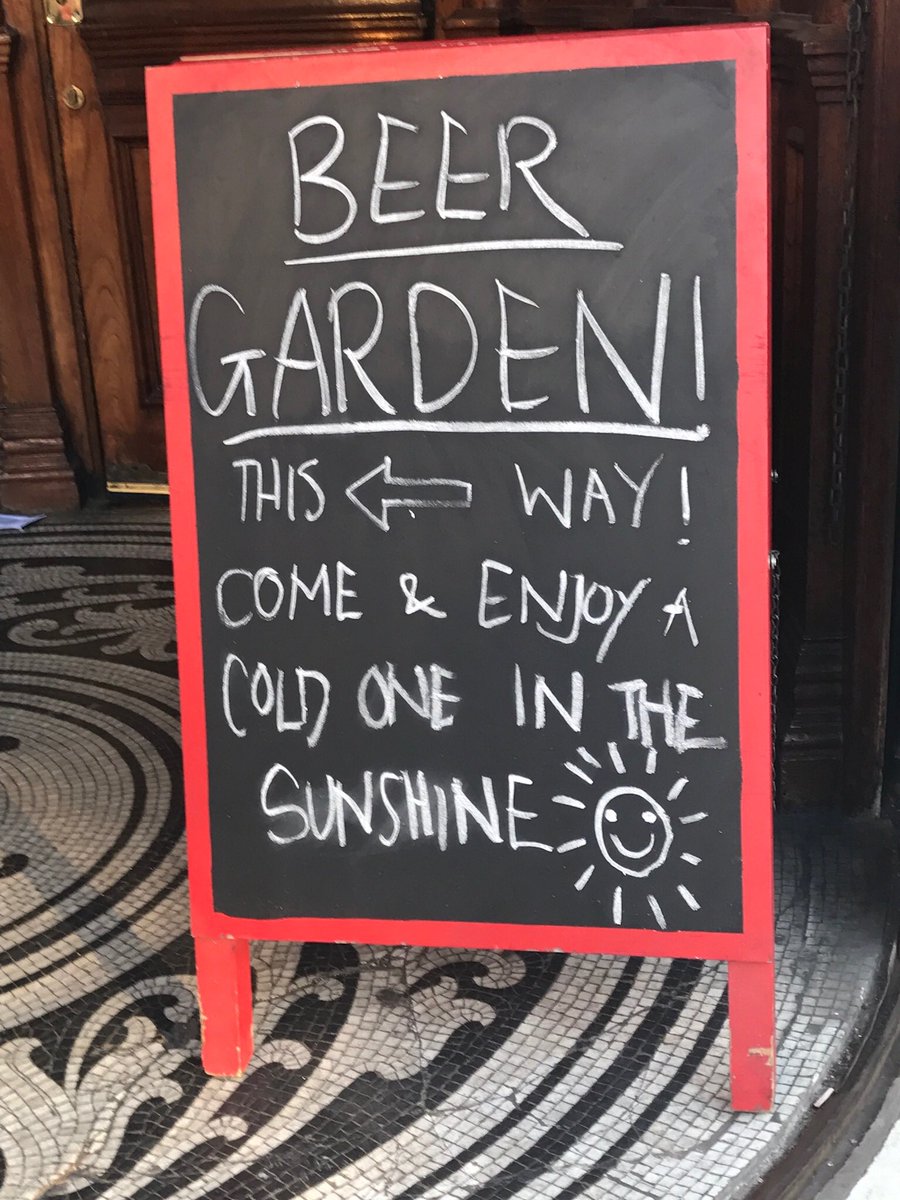 BEER
GARDEN!
THIS ← WAY!
COME & ENJOY A
COLD ONE IN THE
SUNSHINE